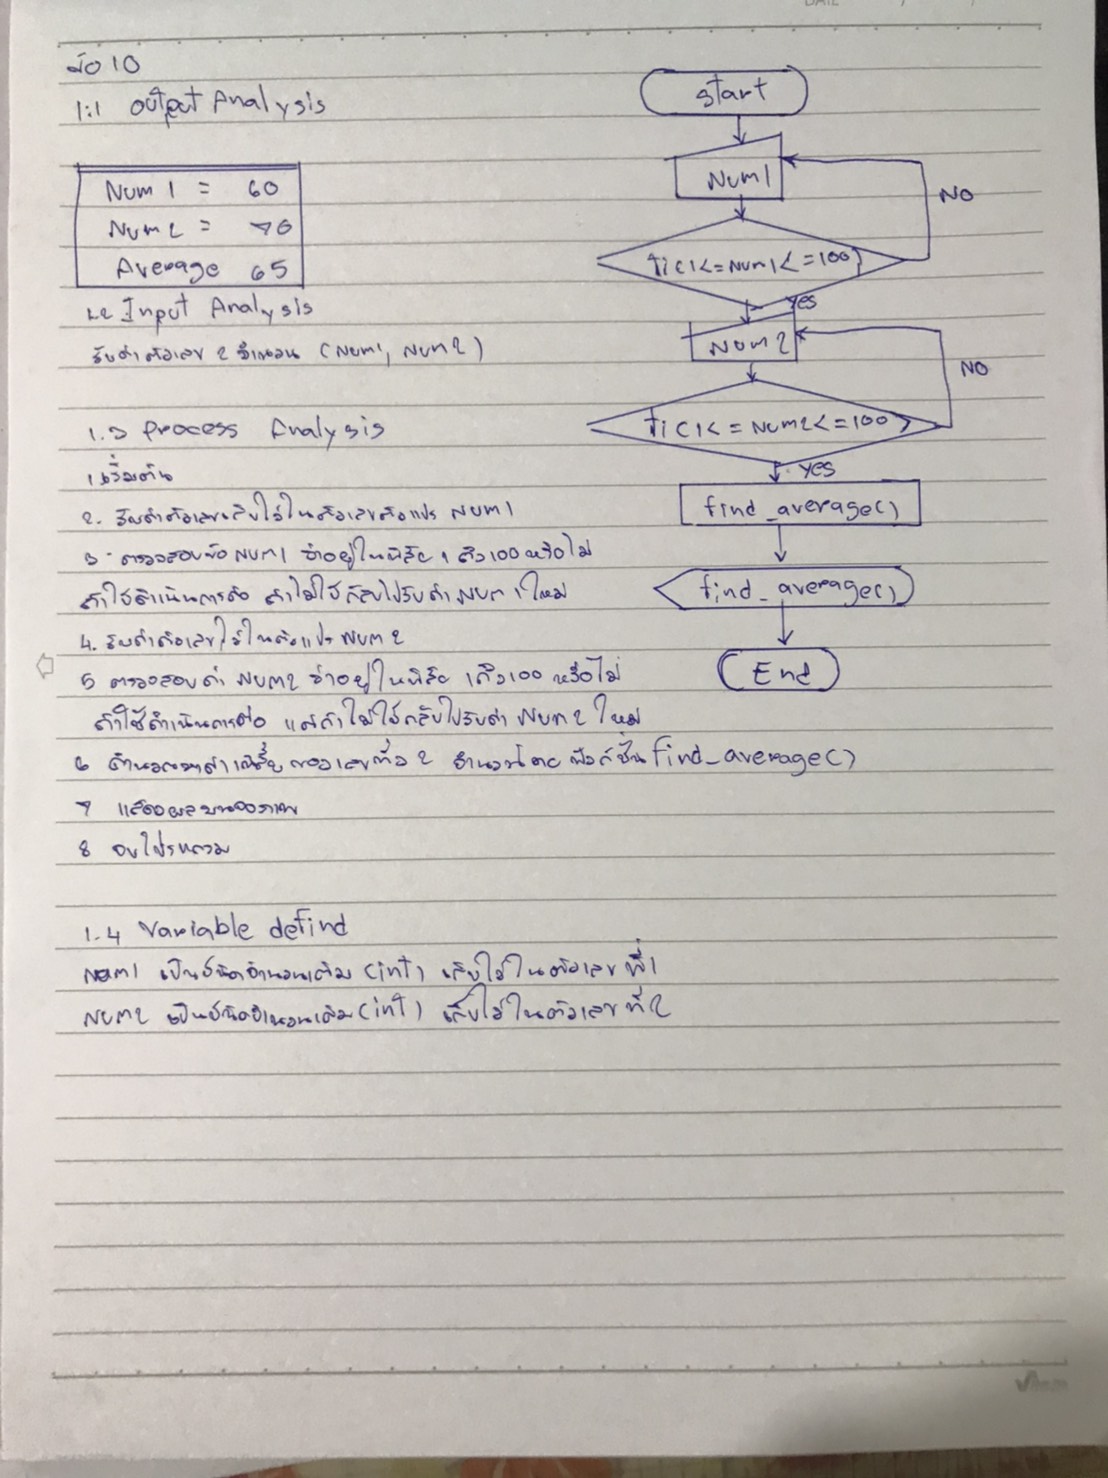 ข้อ 10
1.1 Output Analysis
Num 1 = 60
Num 2 = 70
Average 65
1.2 Input Analysis
รับค่าตัวเลข 2 จำนวน (Num1, Num2)
1.3 Process Analysis
1. เริ่มต้น
2. รับค่าตัวเลขเก็บไว้ในตัวเลขตัวแปร Num1
3. ตรวจสอบข้อ Num1 ว่าอยู่ในพิสัย 1 ถึง 100 หรือไม่
ถ้าใช่ดำเนินการต่อ ถ้าไม่ใช่กลับไปรับค่า Num1 ใหม่
4. รับค่าตัวเลขไว้ในตัวแปร Num2
5 ตรวจสอบค่า Num2 ว่าอยู่ในพิสัย 1 ถึง 100 หรือไม่
ถ้าใช่ดำเนินการต่อ แต่ถ้าไม่ใช่กลับไปรับค่า Num2 ใหม่
6 คำนวณหาค่าเฉลี่ยของเลขทั้ง 2 จำนวนโดย ฟังก์ชั่น find_average()
7 แสดงผลบนจอภาพ
8 จบโปรแกรม
1.4 Variable defind
Num1 เป็นชนิดจำนวนเต็ม (int) เก็บไว้ในตัวเลขที่ 1
Num2 เป็นชนิดจำนวนเต็ม (int) เก็บไว้ในตัวเลขที่ 2
start
Num1
if(1<=Num1<=100)
NO
Yes
Num2
if(1<=Num2<=100)
NO
Yes
find_average()
find_average()
End